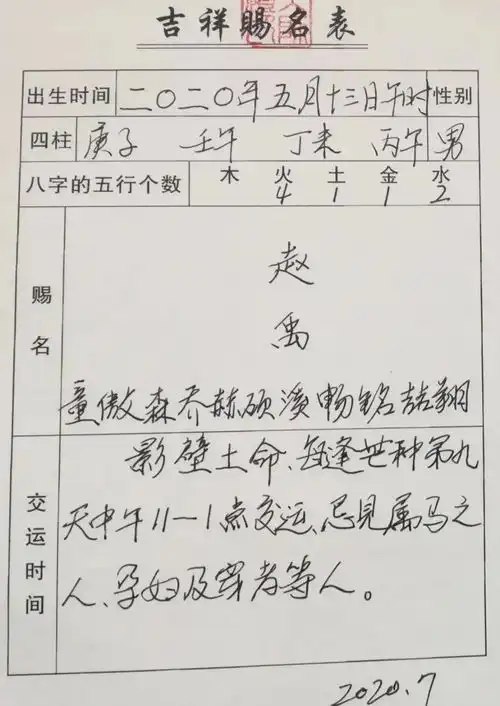 吉祥赐名表
出生时间 二〇二〇年五月十三日午时 性别
四柱 庚子 壬午 丁未 丙午 男
八字的五行个数 木 火4 土1 金1 水2
赐名
赵
禹
童傲森乔赫硕滨畅铭喆翔
交运时间
影壁土命、每逢芒种第九
天中午11-1点交运、忌见属马之
人、孕妇及穿孝等人。
2020.7